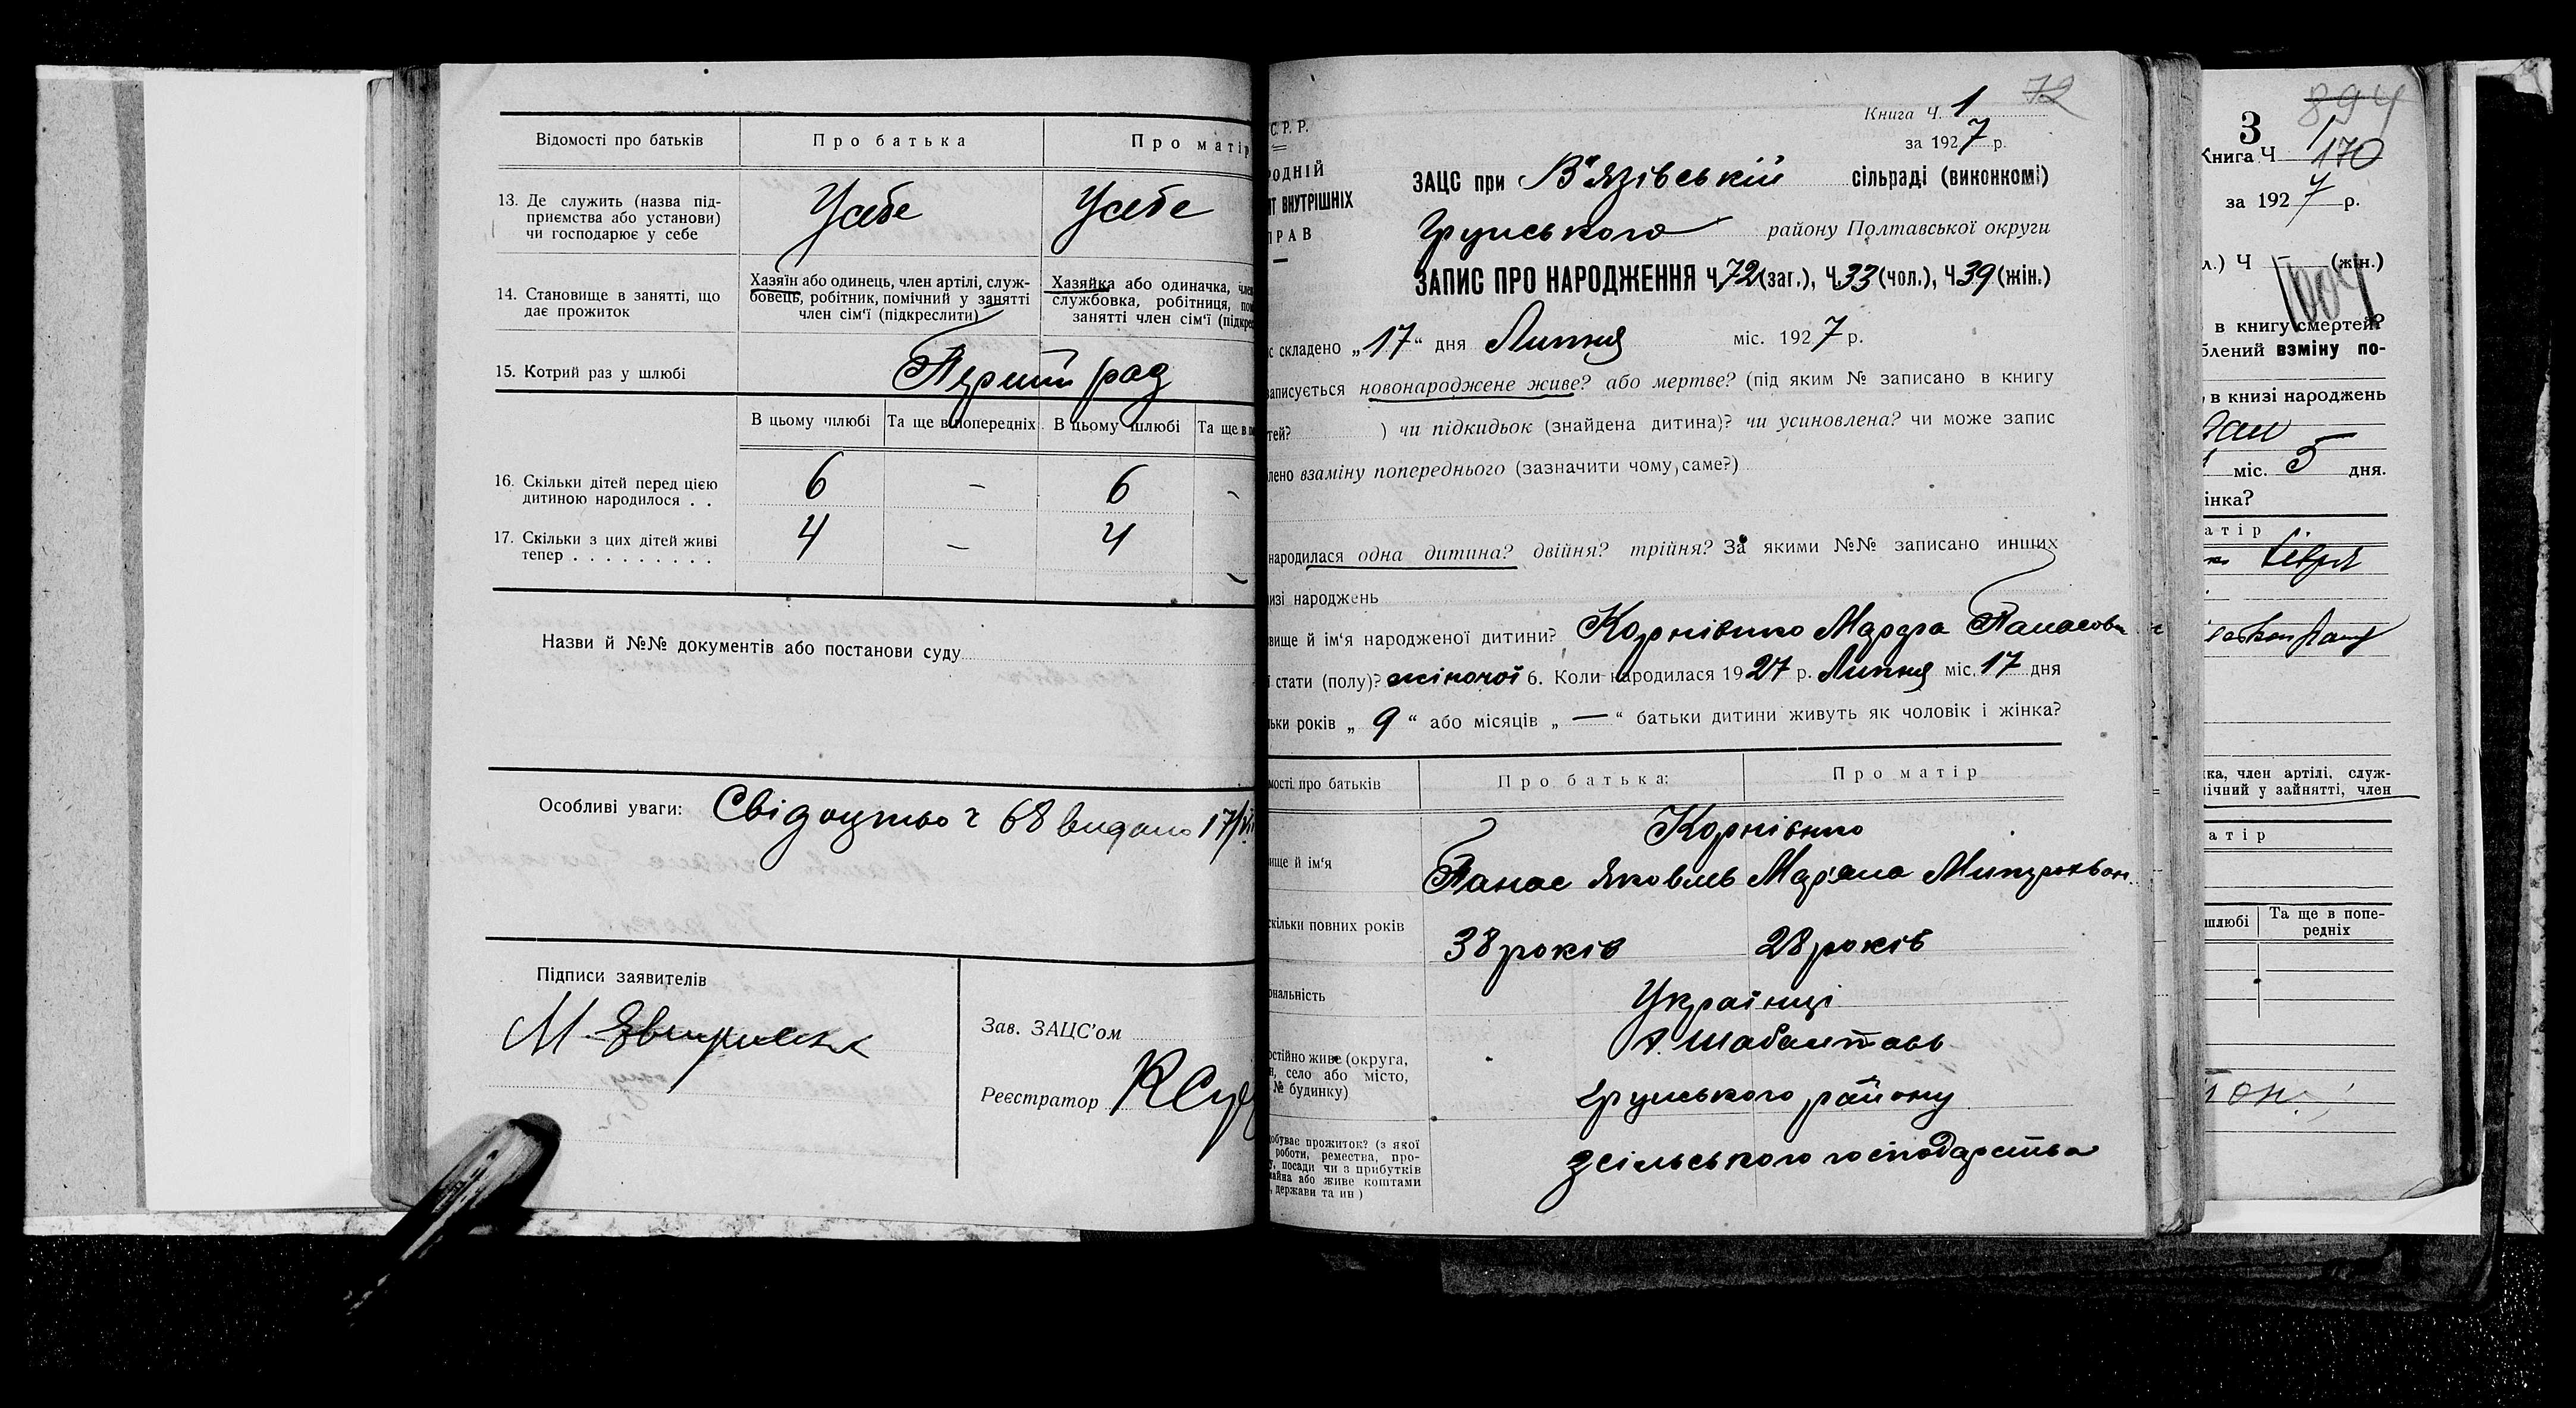 Відомості про батьків
Про батька
Про матір
13. Де служить (назва під-
приємства або установи)
чи господарює у себе
Усебе
Усебе
14. Становище в занятті, що
дає прожиток
Хазяїн або одинець, член артілі, служ-
бовець, робітник, помічний у занятті
член сім'ї (підкреслити)
Хазяйка або одиначка, член
службовка, робітниця, по
занятті член сім'ї (підкре
15. Котрий раз у шлюбі
Перший раз
В цьому шлюбі
Та ще в попередніх
В цьому шлюбі
Та ще в по
16. Скільки дітей перед цією
дитиною народилося . .
6 – 6 –
17. Скільки з цих дітей живі
тепер . . . . . . . . .
4 – 4 –
Назви й №№ документів або постанови суду
Особливі уваги: Свідоцтво ч 68 видано 17/VII
Підписи заявителів
М.
Зав. ЗАЦС'ом
Реєстратор
72
С. Р. Р.
РОДНІЙ
ІТ ВНУТРІШНІХ
ПРАВ
Книга Ч. 1
за 1927 р.
ЗАЦС при В'язівській сільраді (виконкомі)
Грунського району Полтавської округи
ЗАПИС ПРО НАРОДЖЕННЯ Ч. 72 (заг.), Ч. 33 (чол.), Ч. 39 (жін.)
с складено „17“ дня Липня міс. 1927 р.
записується новонароджене живе? або мертве? (під яким № записано в книгу
тей? ) чи підкидьок (знайдена дитина)? чи усиновлена? чи може запис
лено взаміну попереднього (зазначити чому, саме?)
народилася одна дитина? двійня? трійня? За якими №№ записано инших
изі народжень
вище й ім'я народженої дитини? Корнієнко Марфа Панасовн
ї стати (полу)? жіночої 6. Коли народилася 1927 р. Липня міс. 17 дня
льки років „ 9 “ або місяців „ — “ батьки дитини живуть як чоловік і жінка?
мості про батьків
Про батька:
Про матір
вище й ім'я
Корнієнко
Панас Яковль Мар'яна
скільки повних років
38 років 28 років
ональність
Українці
остійно живе (округа,
н, село або місто,
№ будинку)
х. Шабалтаєв
Грунського району
обуває прожиток? (з якої
роботи, ремества, про-
у, посади чи з прибутків
майна або живе коштами
, держави та ин)
З сільського господарства
894
3
Книга Ч 1
170
за 1927 р.
л.) Ч – (жін.)
в книгу смертей?
блений взміну по-
, в книзі народжень
міс. 5 дня.
інка?
атір
ка, член артілі, служ-
ічний у зайнятті, член
атір
шлюбі
Та ще в попе-
редніх